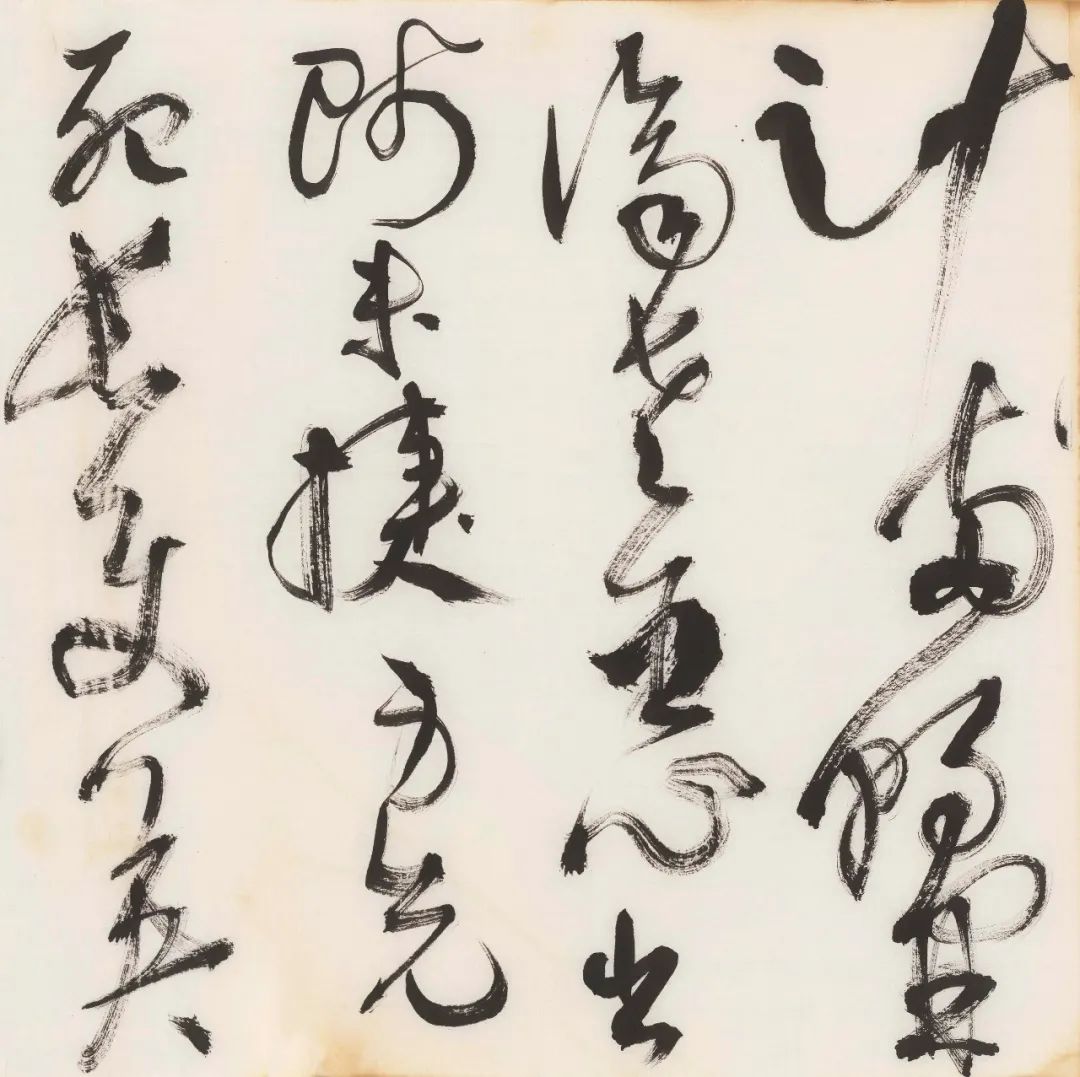 計兩朝開
濟老臣心出
師未捷身先
死長使英